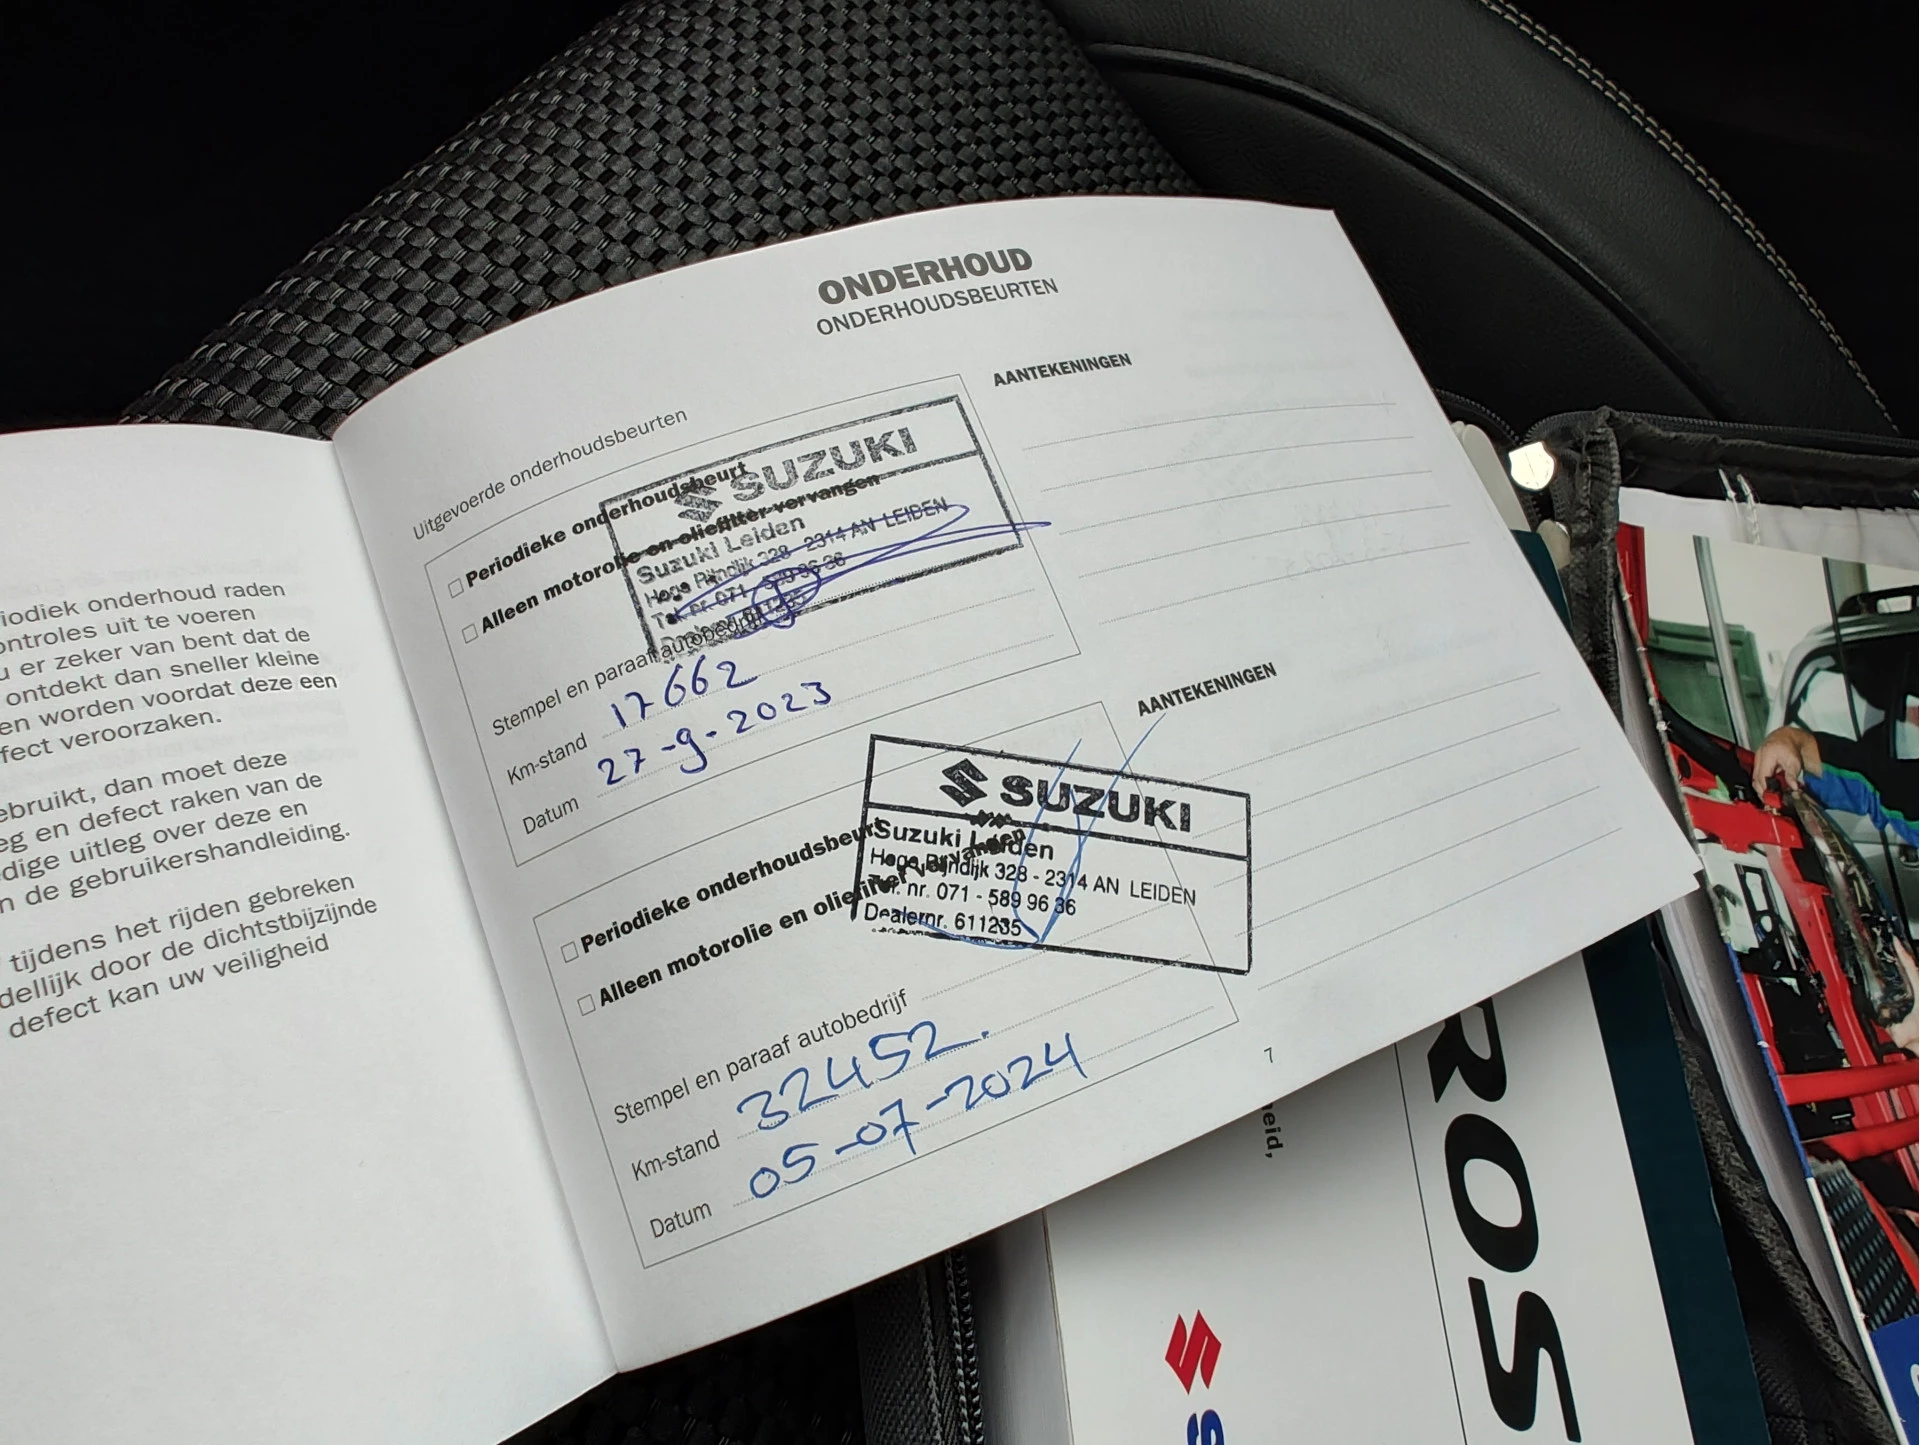 iodiek onderhoud raden
ontroles uit te voeren
u er zeker van bent dat de
ontdekt dan sneller kleine
en worden voordat deze een
fect veroorzaken.
ebruikt, dan moet deze
eg en defect raken van de
dige uitleg over deze en
n de gebruikershandleiding.
tijdens het rijden gebreken
dellijk door de dichtstbijzijnde
defect kan uw veiligheid
ONDERHOUD
ONDERHOUDSBEURTEN
Uitgevoerde onderhoudsbeurten
AANTEKENINGEN
Periodieke onderhoudsbeurt
Alleen motorolie en oliefilter vervangen
SUZUKI
Suzuki Leiden
Hoge Rijndijk 328 - 2314 AN LEIDEN
Tel. nr. 071 - 589 96 36
Dealernr. 611235
Stempel en paraaf autobedrijf
Km-stand 17662
Datum 27-9-2023
AANTEKENINGEN
Periodieke onderhoudsbeurt
Alleen motorolie en oliefilter vervangen
SUZUKI
Suzuki Leiden
Hoge Rijndijk 328 - 2314 AN LEIDEN
Tel. nr. 071 - 589 96 36
Dealernr. 611235
Stempel en paraaf autobedrijf
Km-stand 32452.
Datum 05-07-2024
7
heid,
ROS
S